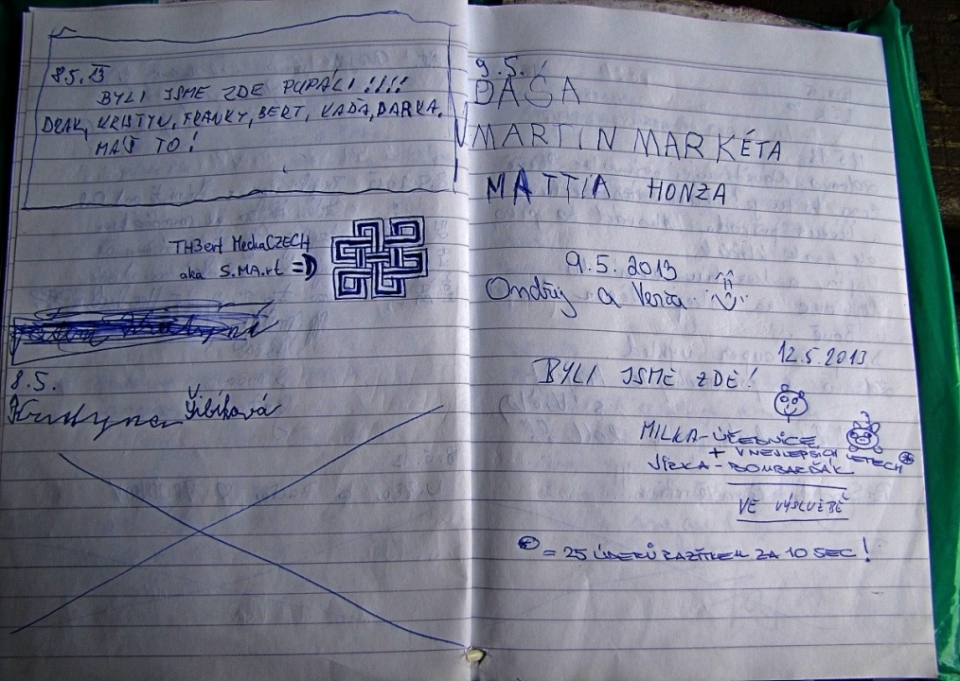 8.5.13
BYLI JSME ZDE PUPÁLI!!!!
DRAK, KRISTYN, FRANKY, BERT, KAĎA, DARKA.
MAŤ TO!
TH3ert MechaCZECH
aka S.MA.rt =)
8.5.
Kristyna Šibíková
9.5.
DÁŠA
MARTIN MARKÉTA
MATTIA HONZA
9.5.2013
Ondřej a Verča
12.5.2013
BYLI JSME ZDE!
MILKA-ÚČEDNICE
+ V NEJLEPŠÍCH LETECH *
JIRKA-BOMBARĎÁK
VE VÝSLUŽBĚ
* = 25 ÚDERŮ RAZÍTKEM ZA 10 SEC!